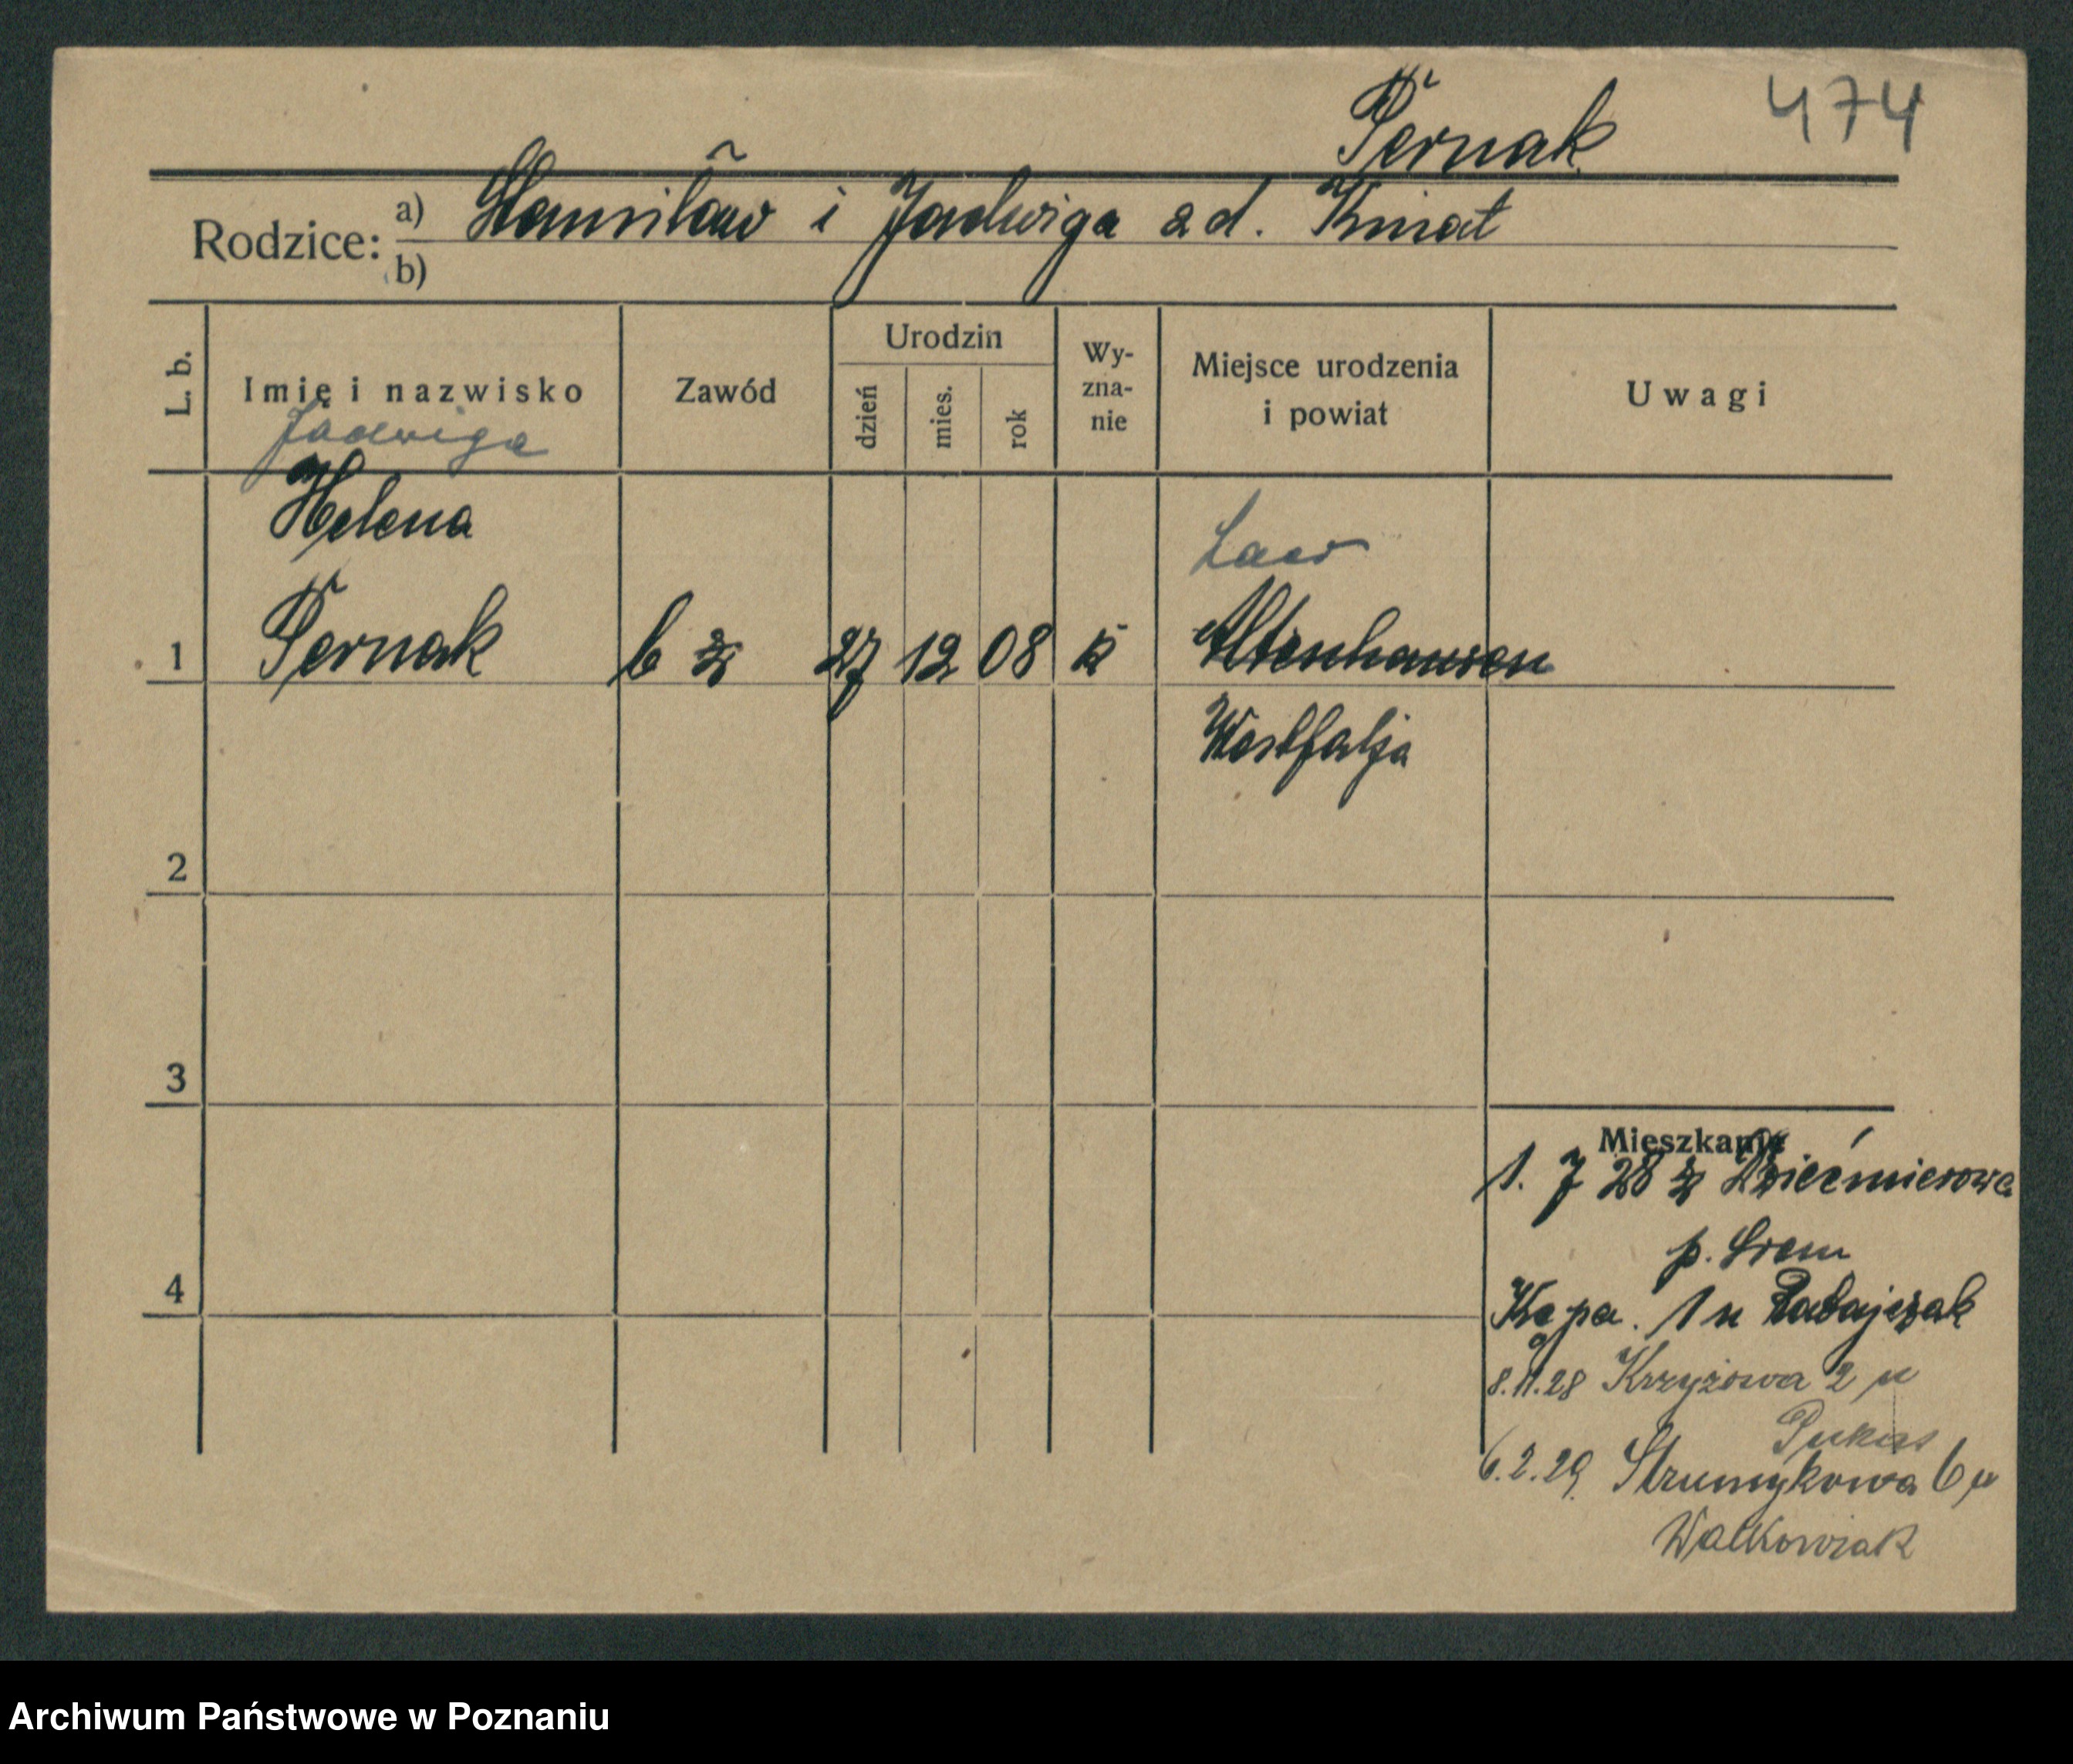 Pernak 474
Rodzice: a) Stanisław i Jadwiga zd. Kmiat
b)
L. b. Imię i nazwisko Zawód Urodzin dzień mies. rok Wyznanie Miejsce urodzenia i powiat Uwagi
Jadwiga
Helena
1 Pernak b z 27 12 08 k Altenhausen
Westfalja
2
3
4
Mieszkanie
1. 7 28 z Dziećmierowa
p. Srem
Kępa. 1 u Ratajczak
8.11.28 Krzyżowa 2 u
Pukas
6.2.29. Strumykowa 6 u
Walkowiak
Archiwum Państwowe w Poznaniu